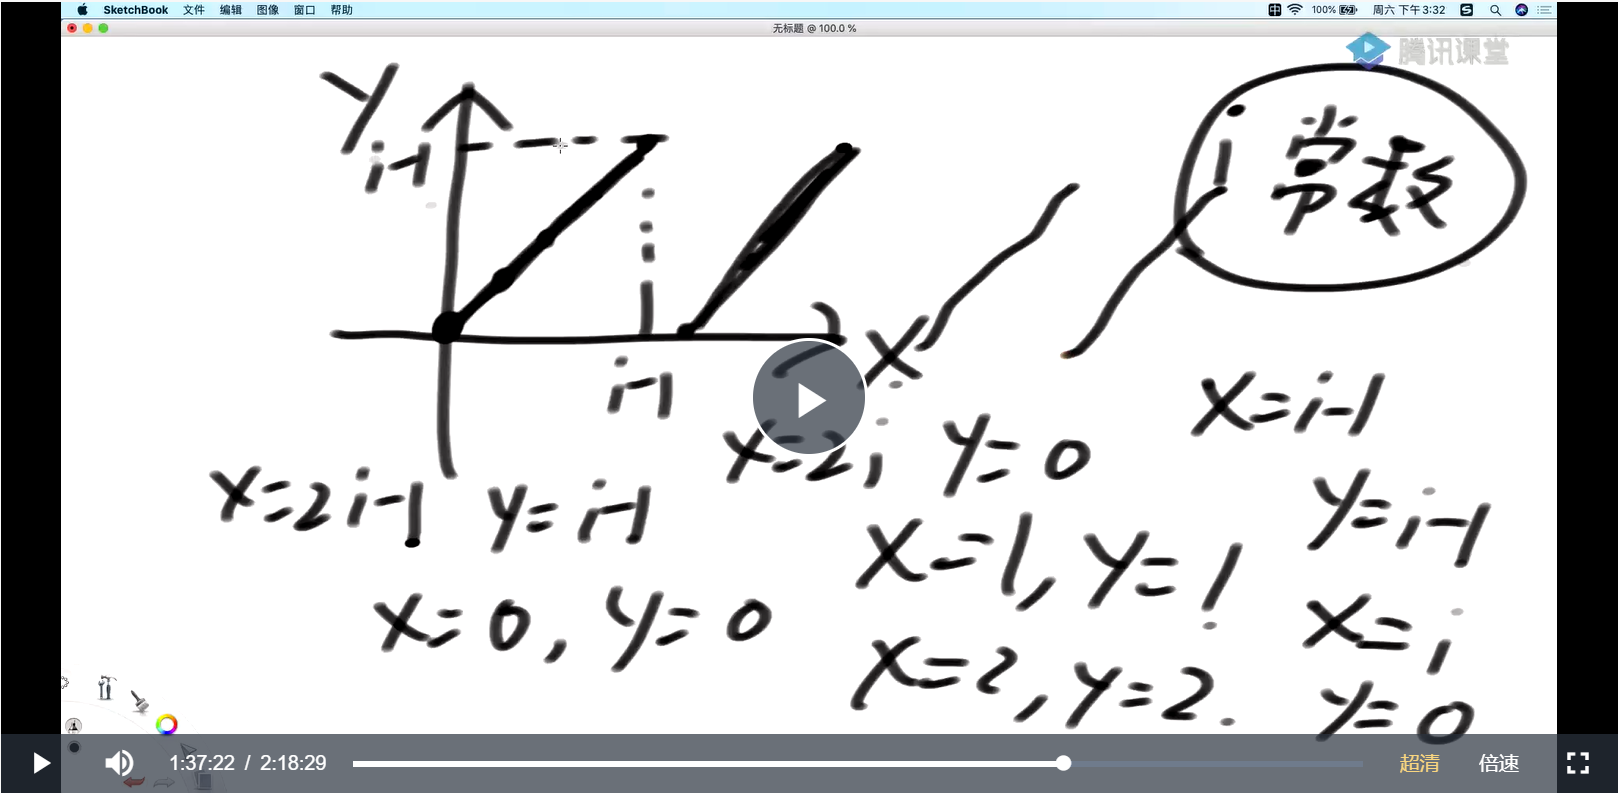 SketchBook 文件 编辑 图像 窗口 帮助 100% 周六 下午3:32
无标题 @ 100.0 %
腾讯课堂
y
i-1
i 常数
x
i-1
x=i-1
x=2i y=0
x=2i-1 y=i-1
y=i-1
x=1, y=1
x=0, y=0
x=i
x=2, y=2.
y=0
1:37:22 / 2:18:29 超清 倍速